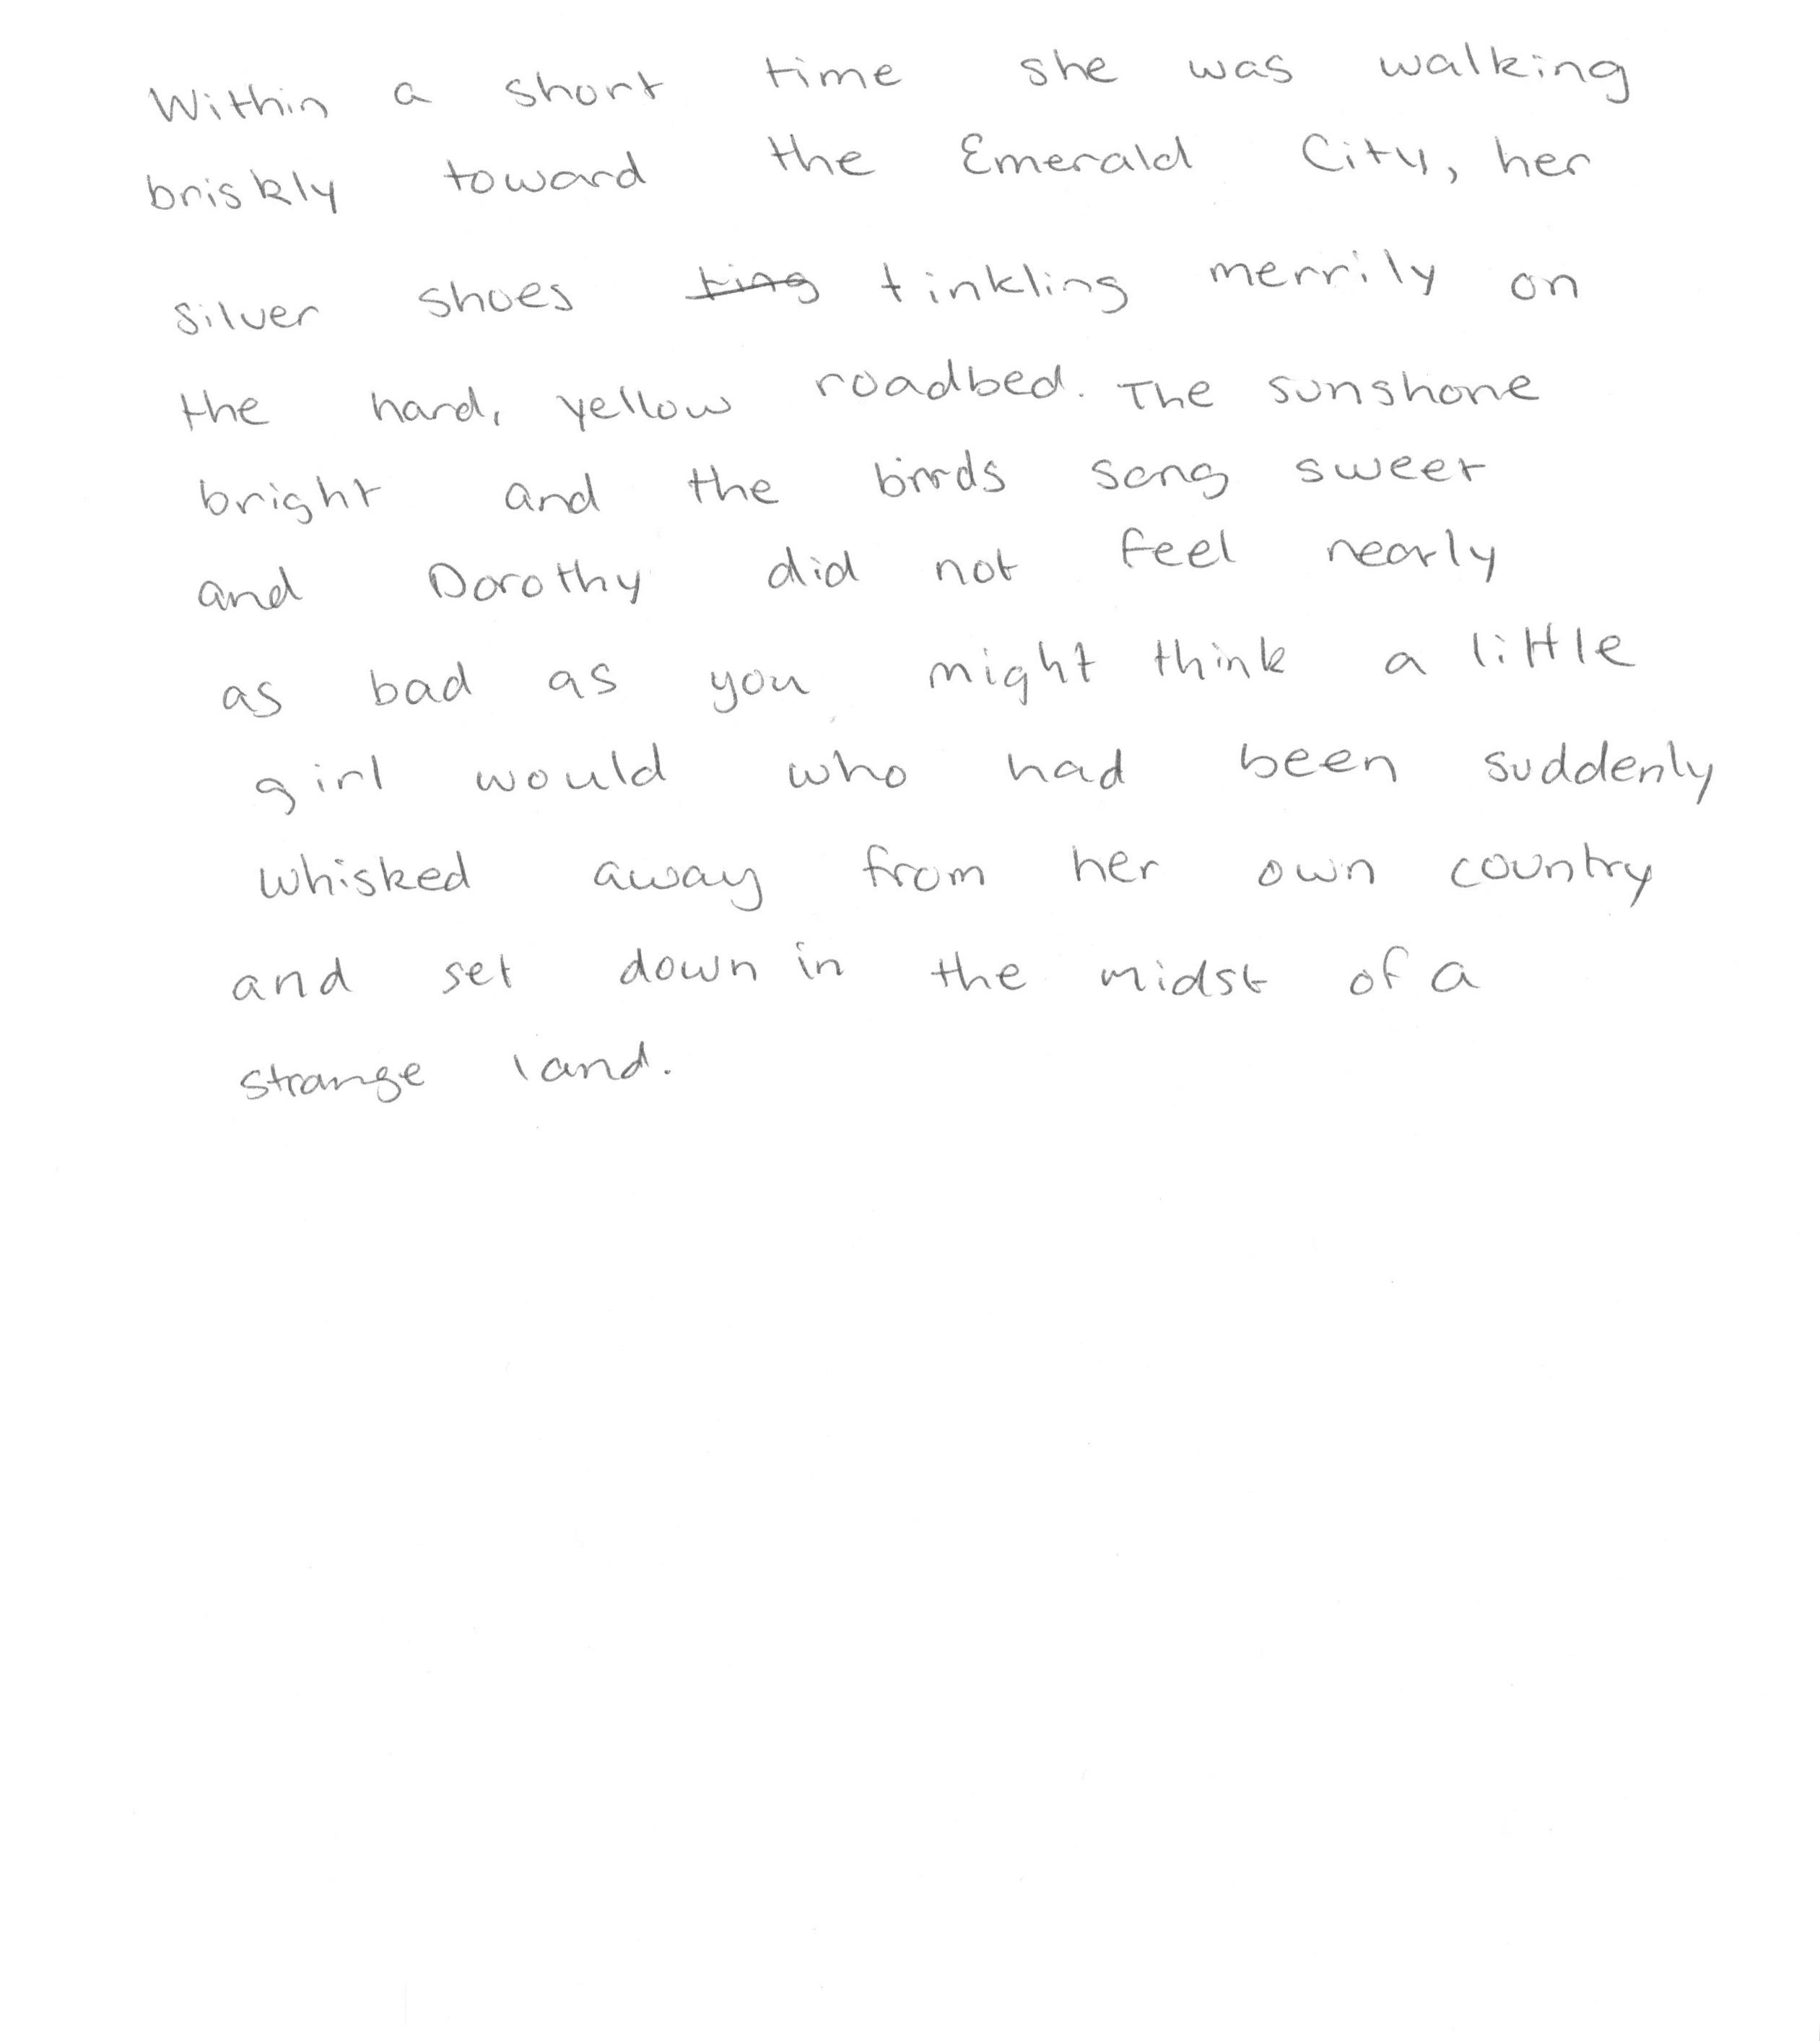 Within a short time she was walking
briskly toward the Emerald City, her
silver shoes ting tinkling merrily on
the hard, yellow roadbed. The sunshone
bright and the birds song sweet
and Dorothy did not feel nearly
as bad as you might think a little
girl would who had been suddenly
whisked away from her own country
and set down in the midst of a
strange land.